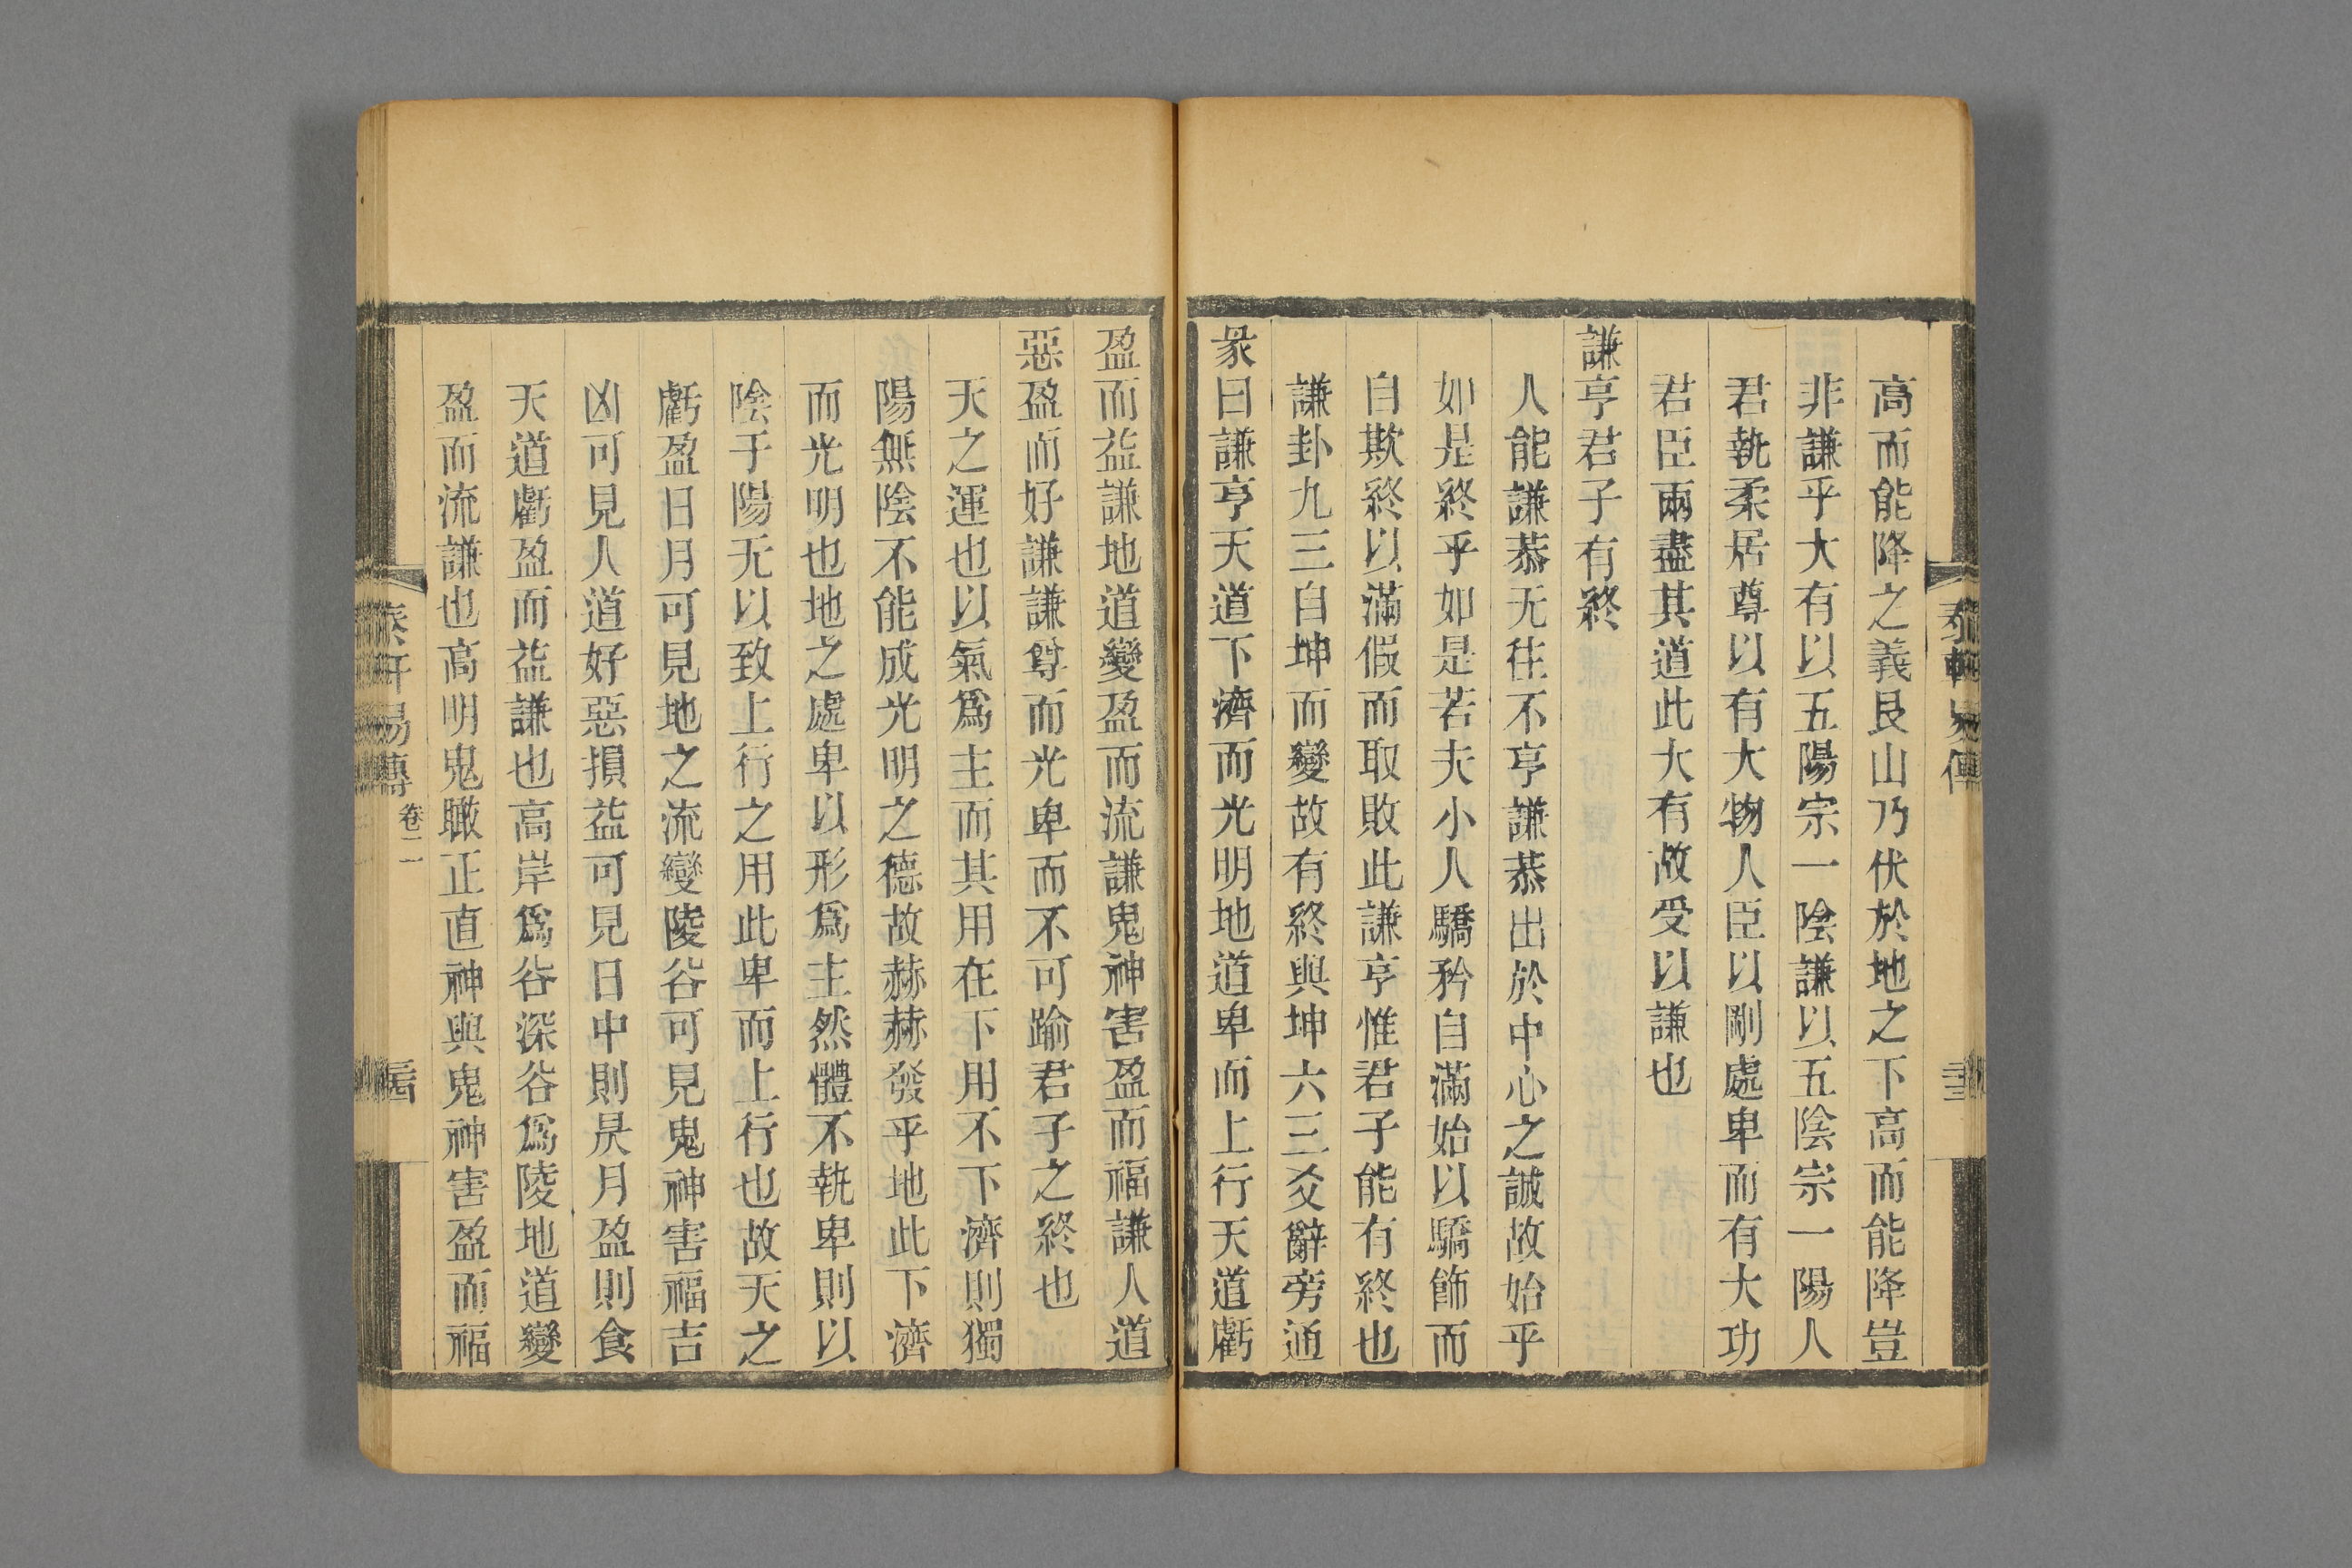 泰軒易傳
高而能降之義艮山乃伏於地之下高而能降豈
非謙乎大有以五陽宗一陰謙以五陰宗一陽人
君執柔居尊以有大物人臣以剛處卑而有大功
君臣兩盡其道此大有故受以謙也
謙亨君子有終
人能謙恭无往不亨謙恭出於中心之誠故始乎
如是終乎如是若夫小人驕矜自滿始以驕飾而
自欺終以滿假而取敗此謙亨惟君子能有終也
謙卦九三自坤而變故有終與坤六三爻辭旁通
彖曰謙亨天道下濟而光明地道卑而上行天道虧
盈而益謙地道變盈而流謙鬼神害盈而福謙人道
惡盈而好謙謙尊而光卑而不可踰君子之終也
天之運也以氣爲主而其用在下用不下濟則獨
陽無陰不能成光明之德故赫赫發乎地此下濟
而光明也地之處卑以形爲主然體不執卑則以
陰于陽无以致上行之用此卑而上行也故天之
虧盈日月可見地之流變陵谷可見鬼神害福吉
凶可見人道好惡損益可見日中則昃月盈則食
天道虧盈而益謙也高岸爲谷深谷爲陵地道變
盈而流謙也高明鬼瞰正直神與鬼神害盈而福
泰軒易傳
卷二